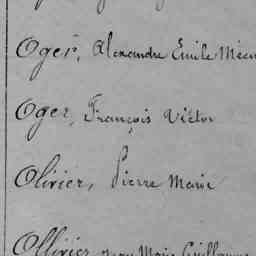 Oger, Alexandre Emile Méen
Oger, François Victor
Olivier, Pierre Marie
Ollivier, Jean Marie Guillaume